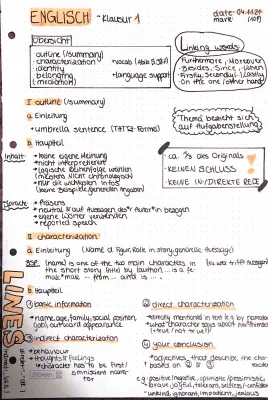 ENGLISCH - Klausur 1
date: 04.11.20
mark:
Übersicht
· outline (/summary)
· characterization
· identity
· belonging
· (mediation)
· vocab
· language support
Linking words:
Furthermore, Moreover
Besides, Since, Given
Firstly, Secondly (...), Lastly
On the one / other hand
I outline (/summary)
a. Einleitung
→ umbrella sentence (TATTZ-Formel)
Thema bezieht sich
auf Aufgabenstellung
b. Hauptteil
Inhalt:
→ keine eigene Meinung
→ nicht interpretieren
→ logische Reihenfolge wählen
(meistens nicht chronologisch)
→ nur die wichtigsten Infos
(keine Beispiele, genaue Angaben)
· ca. 1/3 des Originals
· KEINEN SCHLUSS
· KEINE IN-/DIREKTE REDE
Sprache:
→ Präsens
→ neutral & auf Aussagen des*r Autor*in bezogen
→ eigene Wörter verwenden
→ reported speech
II characterization
a. Einleitung (Name d. Figur, Rolle in story, gender, Aussage)
BSP. (name) is one of the two main characters in
the short story (title) by (author)... is a fe
male*male ... from ... and is ... .
b. Hauptteil
① basic information
→ name, age, family, social position,
(job), outward appearance
② direct characterization
→ directly mentioned in text e.g. by narrator
→ what character says about his*themself
(true / not to self)
③ indirect characterization
→ behaviour
→ thoughts & feelings
→ character has to be first /
omniscient narra-
tor
④ your conclusion
→ adjectives, that describe the cha-
based on ② & ③
e.g. positive/negative, optimistic/pessimistic,
brave, joyful, tolerant, selfless / confident
unkind, ignorant, impatient, jealous
LINES